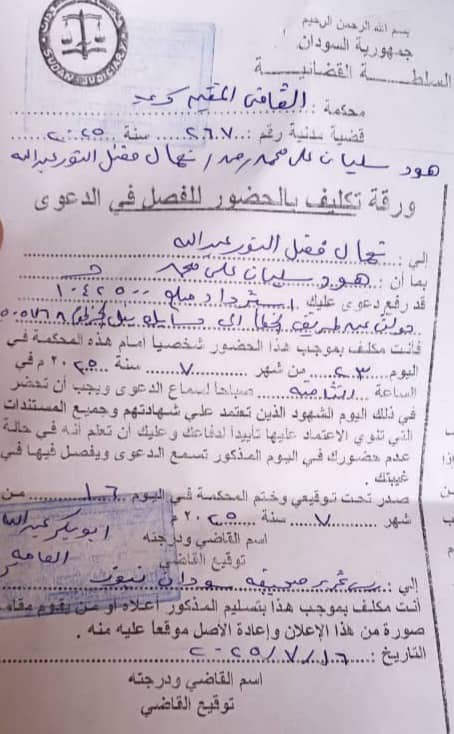 بسم الله الرحمن الرحيم
جمهورية السودان
السلطة القضائية
SUDAN JUDICIARY
محكمة : القاضي المقيم
قضية مدنية رقم : ٢٦٧ سنة ٢٠٢٥
هود سليمان علي محمد ضد / نهال فضل النور عبدالله
ورقة تكليف بالحضور للفصل في الدعوى
إلي : نهال فضل النور عبدالله
بما أن : هود سليمان علي محمد
قد رفع دعوى عليك / استرداد مبلغ ١٠٤٢٥٠٠
حولت عن طريق الخطأ إلى حسابك
فأنت مكلف بموجب هذا الحضور شخصيا أمام هذه المحكمة في
اليوم ٢٣ من شهر ٧ سنة ٢٠٢٥ م في
الساعة الثامنة صباحاً لسماع الدعوى ويجب أن تحضر
في ذلك اليوم الشهود الذين تعتمد علي شهادتهم وجميع المستندات
التي تنوي الاعتماد عليها تأييداً لدفاعك وعليك أن تعلم أنه في حالة
عدم حضورك في اليوم المذكور تسمع الدعوى ويفصل فيها في
غيبتك .
صدر تحت توقيعي وختم المحكمة في اليوم ١٦ من
شهر ٧ سنة ٢٠٢٥ م
ابوبكر عبدالله
اسم القاضي ودرجته
توقيع القاضي
إلي : تحرير صحيفة سودان نيوز
أنت مكلف بموجب هذا بتسليم المذكور أعلاه أو من يقوم مقامه
صورة من هذا الإعلان وإعادة الأصل موقعا عليه منه .
التاريخ : ٢٠٢٥/٧/١٦
اسم القاضي ودرجته
توقيع القاضي